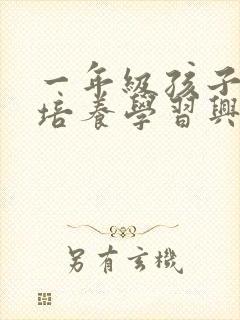 一年級孩子
培養學習興
另有玄機